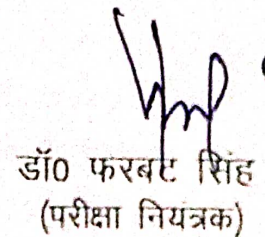 डॉ0 फरबट सिंह
(परीक्षा नियंत्रक)